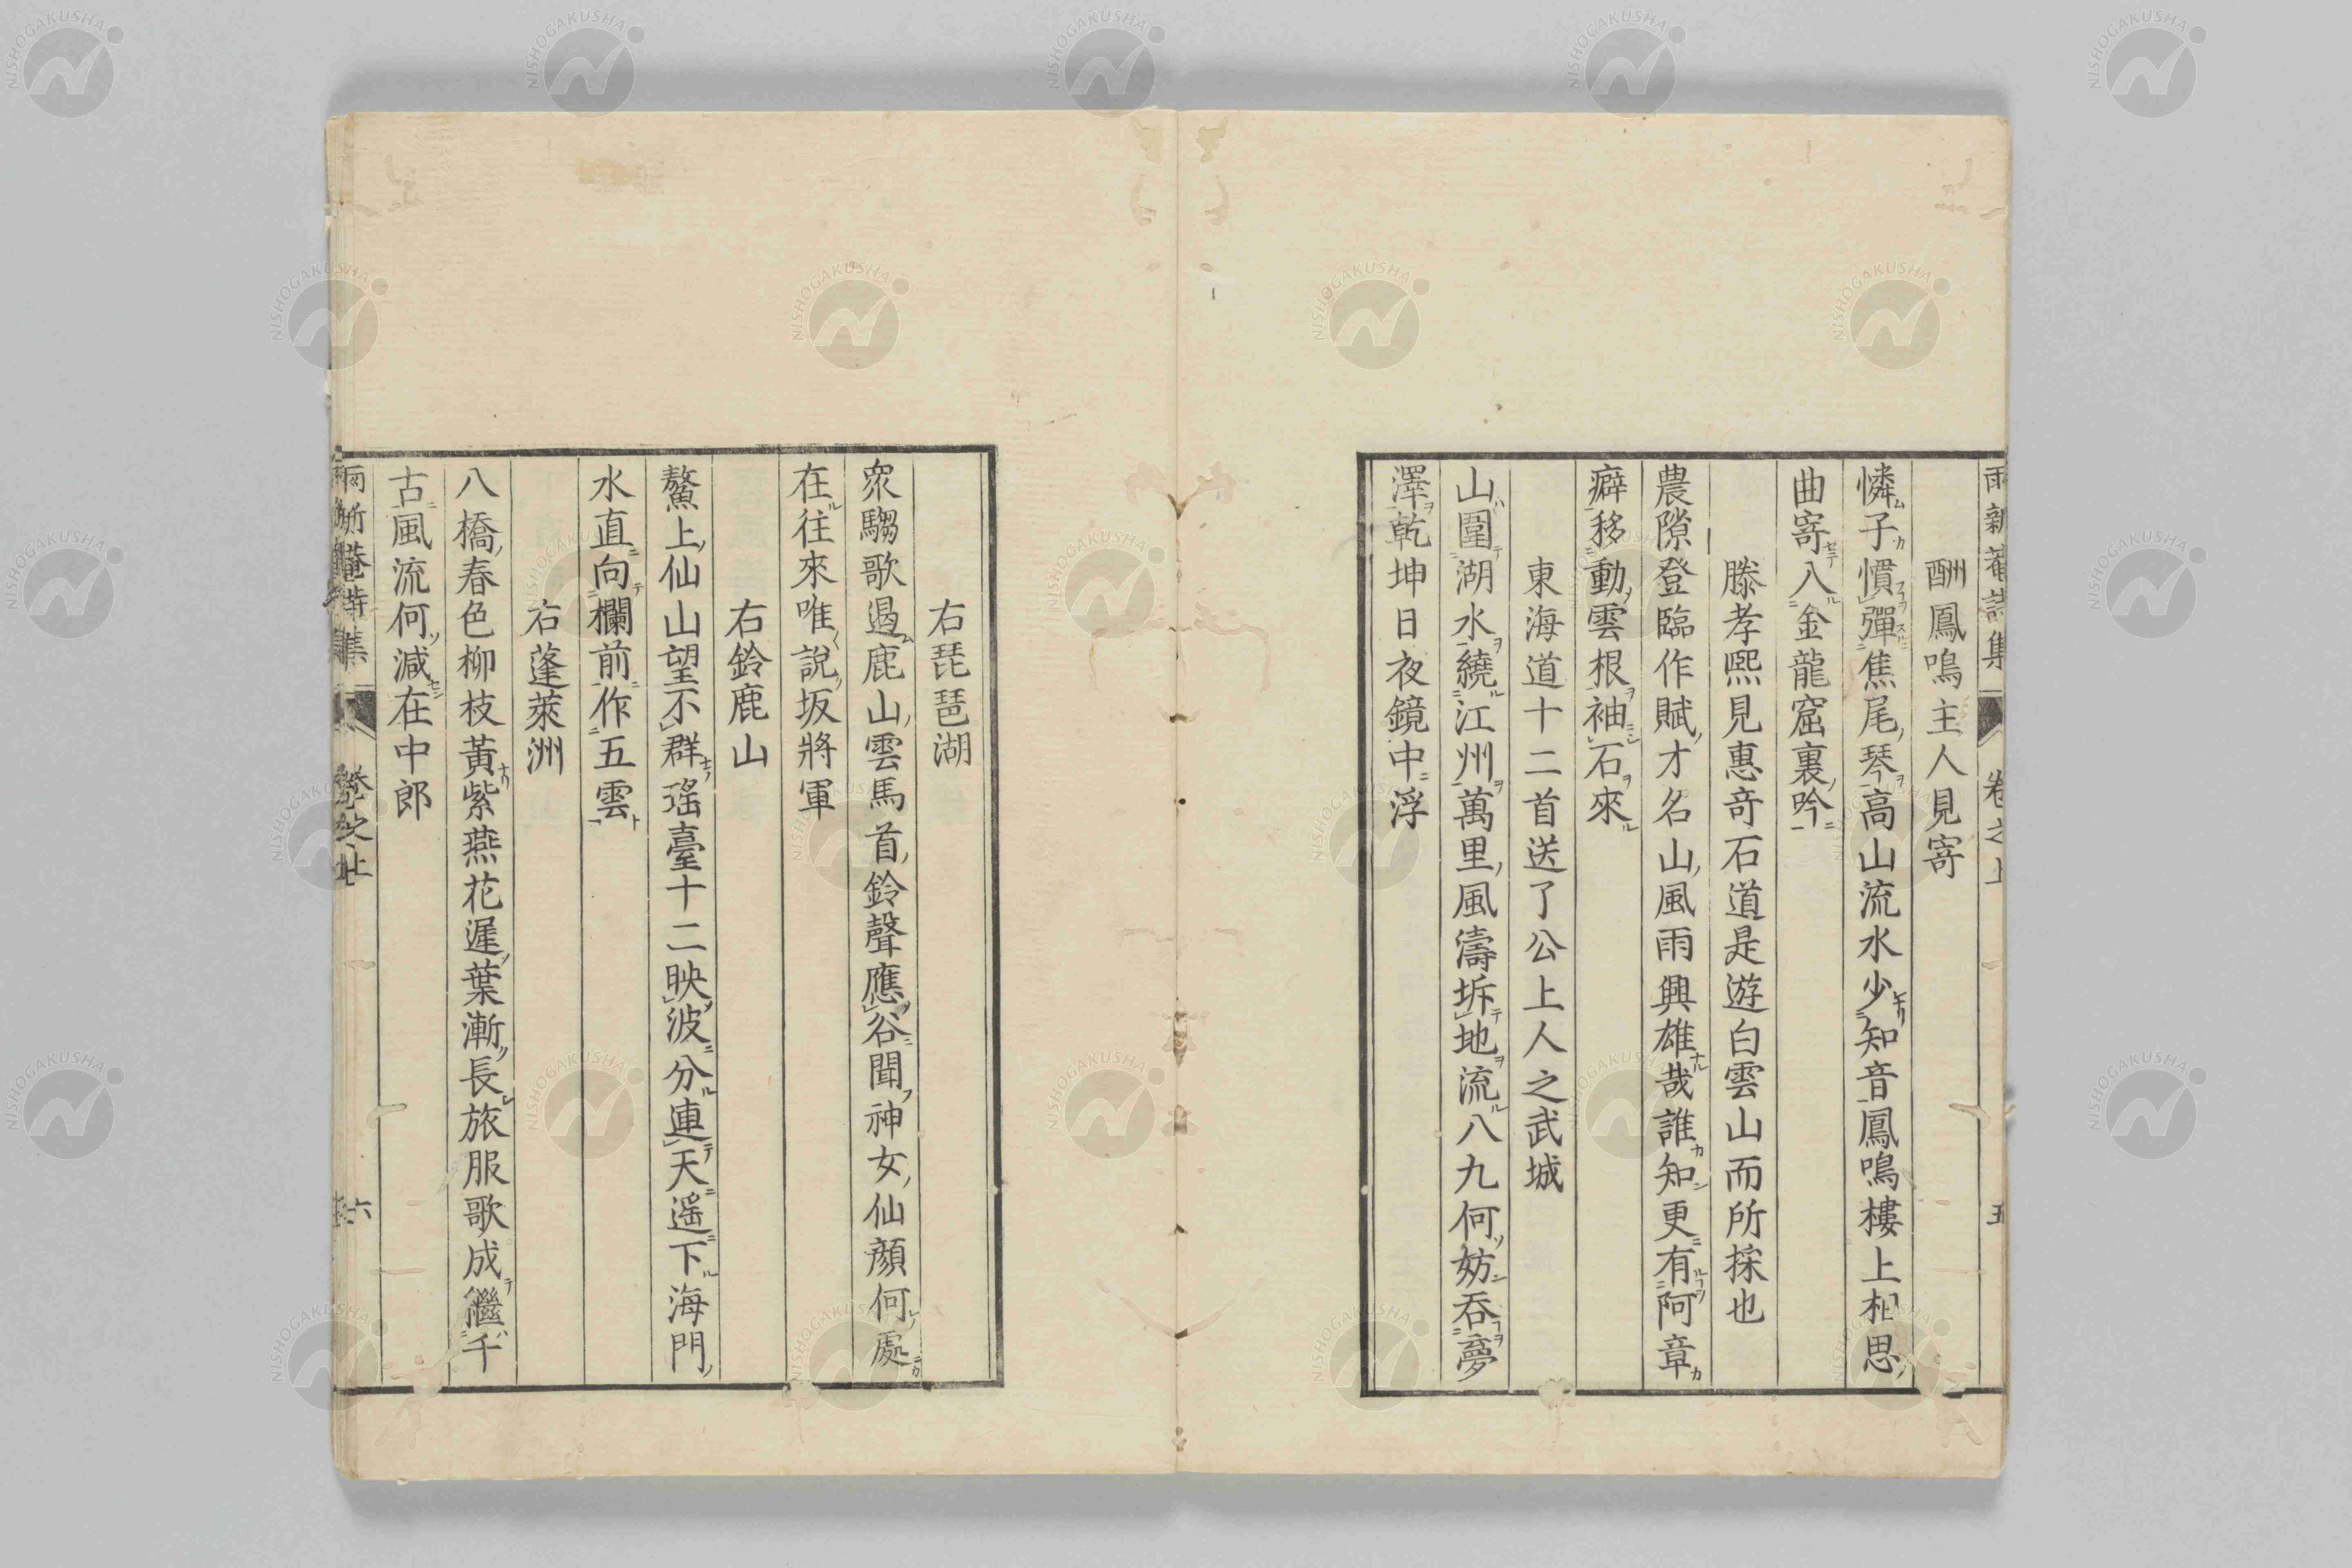 雨新菴詩集 卷之上 五
酬鳳鳴主人見寄
憐子慣彈焦尾琴高山流水少知音鳳鳴樓上相思
曲寄入金龍窟裏吟
滕孝熙見惠奇石道是遊白雲山而所採也
農隙登臨作賦才名山風雨興雄哉誰知更有阿章
癖移動雲根袖石來
東海道十二首送了公上人之武城
山圍湖水繞江州萬里風濤坼地流八九何妨吞夢
澤乾坤日夜鏡中浮
右琵琶湖
衆騶歌過鹿山雲馬首鈴聲應谷聞神女仙顔何處
在往來唯說坂將軍
右鈴鹿山
鰲上仙山望不群瑤臺十二映波分連天遥下海門
水直向欄前作五雲
右蓬萊洲
八橋春色柳枝黃紫燕花遲葉漸長旅服歌成繼千
古風流何減在中郎
雨新菴詩集 卷之上 六
NISHOGAKUSHA